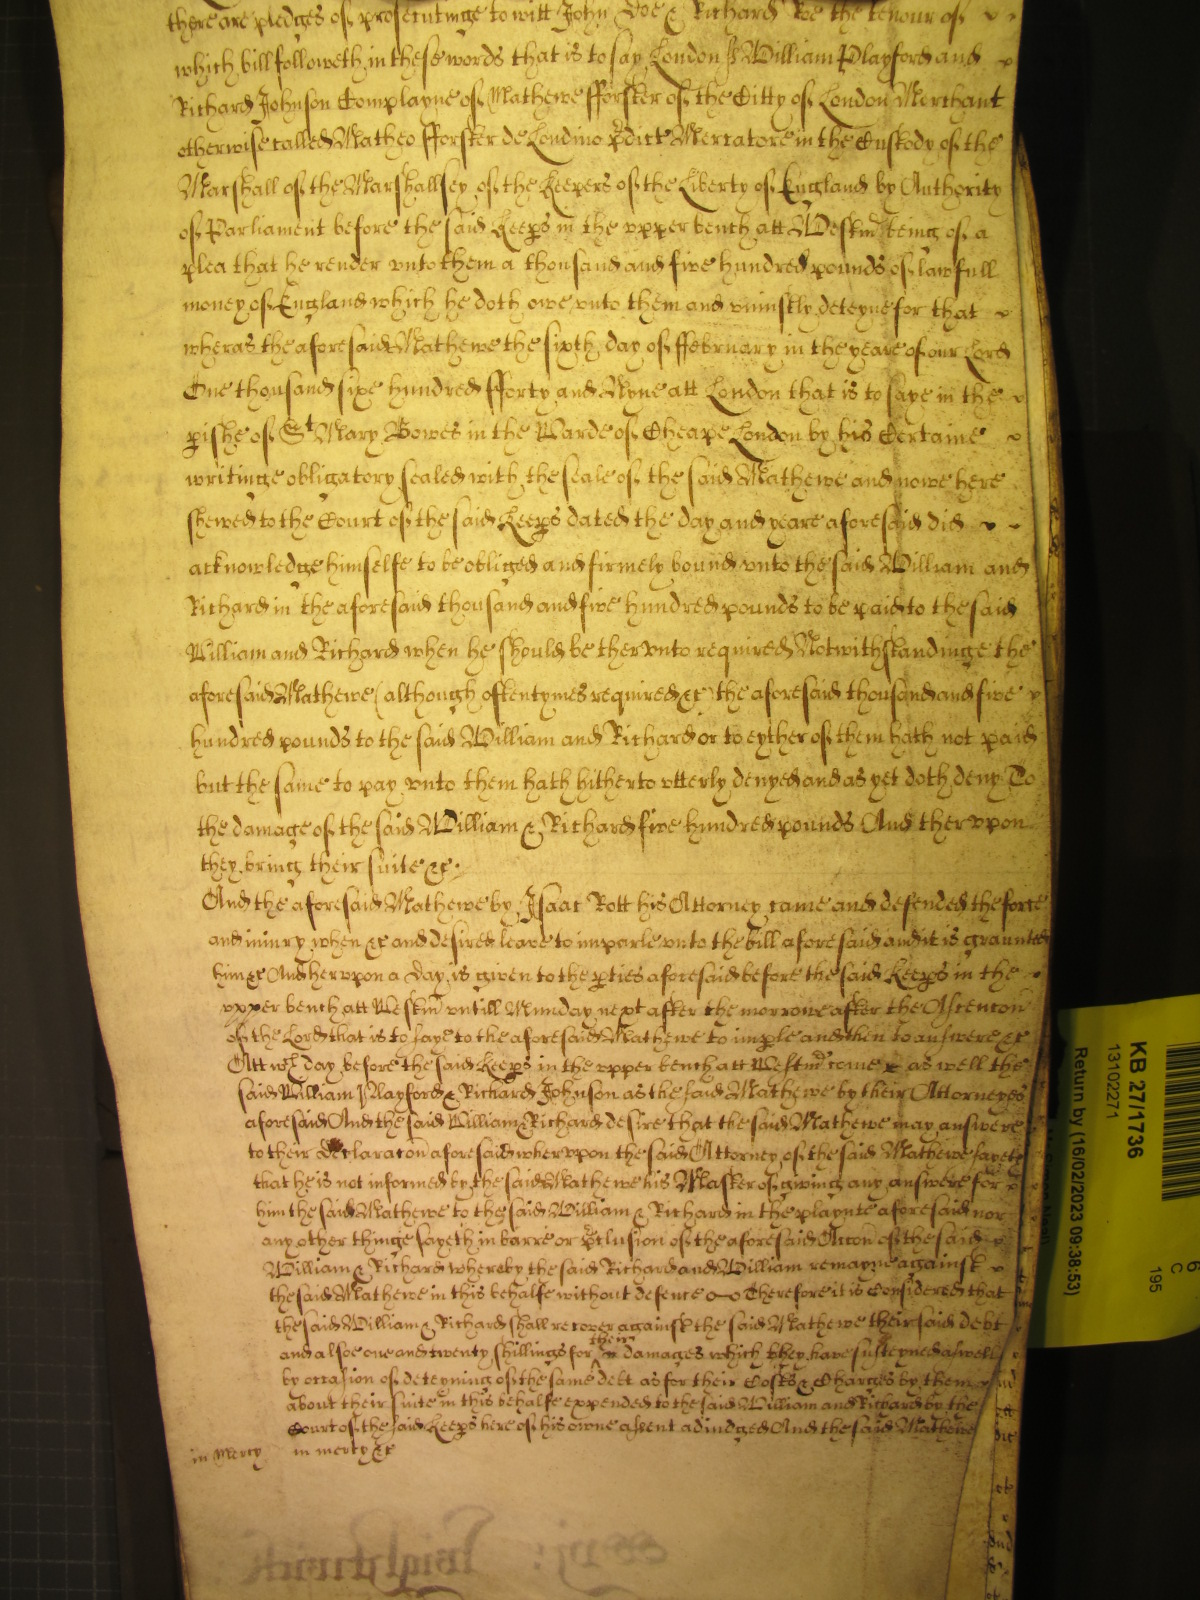 there are pledges of prosecutinge to witt John Doe & Richard Roe the tenour of
which bill followeth in these words that is to say London ss William Playford and
Richard Johnson Complayne of Mathewe fforster of the Citty of London Merchant
otherwise called Matheo fforster de Londino pdict Mercatore in the Custody of the
Marshall of the Marshallsey of the Keepers of the Liberty of England by Authority
of Parliament before the said Keeps in the upper bench att Westm being of a
plea that he render unto them a thousand and five hundred pounds of lawfull
money of England which he doth owe unto them and uniustly deteyne for that
wheras the aforesaid Mathewe the sixth day of ffebruary in the yeare of our Lord
One thousand sixe hundred fforty and Nyne att London that is to saye in the
pishe of St Mary Bowes in the Warde of Cheape London by his Certaine
writinge obligatory sealed with the seale of the said Mathewe and nowe here
shewed to the Court of the said Keeps dated the day and yeare aforesaid did
acknowledge himselfe to be obliged and firmely bound unto the said William and
Richard in the aforesaid thousand and five hundred pounds to be paid to the said
William and Richard when he should be therunto required Notwithstandinge the
aforesaid Mathewe (although oftentymes required &c) the aforesaid thousand and five
hundred pounds to the said William and Richard or to eyther of them hath not paid
but the same to pay unto them hath hitherto utterly denyed and as yet doth deny To
the damage of the said William & Richard five hundred pounds And therupon
they bring their suite &c
And the aforesaid Mathewe by Isaac Rott his Attorney came and defended the force
and iniury when &c and desired leave to imparle unto the bill aforesaid and it is graunted
him &c And herupon a day is given to the pties aforesaid before the said Keeps in the
upper bench att Westm untill Munday next after the morrowe after the Ascencon
of the Lord that is to saye to the aforesaid Mathewe to imple and then to answere &c
Att wch day before the said Keeps in the upper bench att Westm come as well the
said William Playford & Richard Johnson as the said Mathewe by their Attorneyes
aforesaid And the said William & Richard desire that the said Mathewe may answere
to their declaracon aforesaid wherupon the said Attorney of the said Mathewe sayeth
that he is not informed by the said Mathewe his Master of giving any answere for
him the said Mathewe to the said William & Richard in the playnte aforesaid nor
any other thinge sayeth in barre or pclusion of the aforesaid Accon of the said
William & Richard whereby the said Richard and William remayne against
the said Mathewe in this behalfe without defence Therefore it is Considered that
the said William & Richard shall recover against the said Mathewe their said debt
and alsoe one and twenty shillings for their damages which they have susteyned aswell
by occasion of deteyning of the same debt as for their Costs & Charges by them
about their suite in this behalfe expended to the said William and Richard by the
Court of the said Keeps here of his owne assent adiudged And the said Mathewe
in Mercy in mercy &c
KB 27/1736
13102271
Return by (16/02/2023 09:38:53)
195
C
6